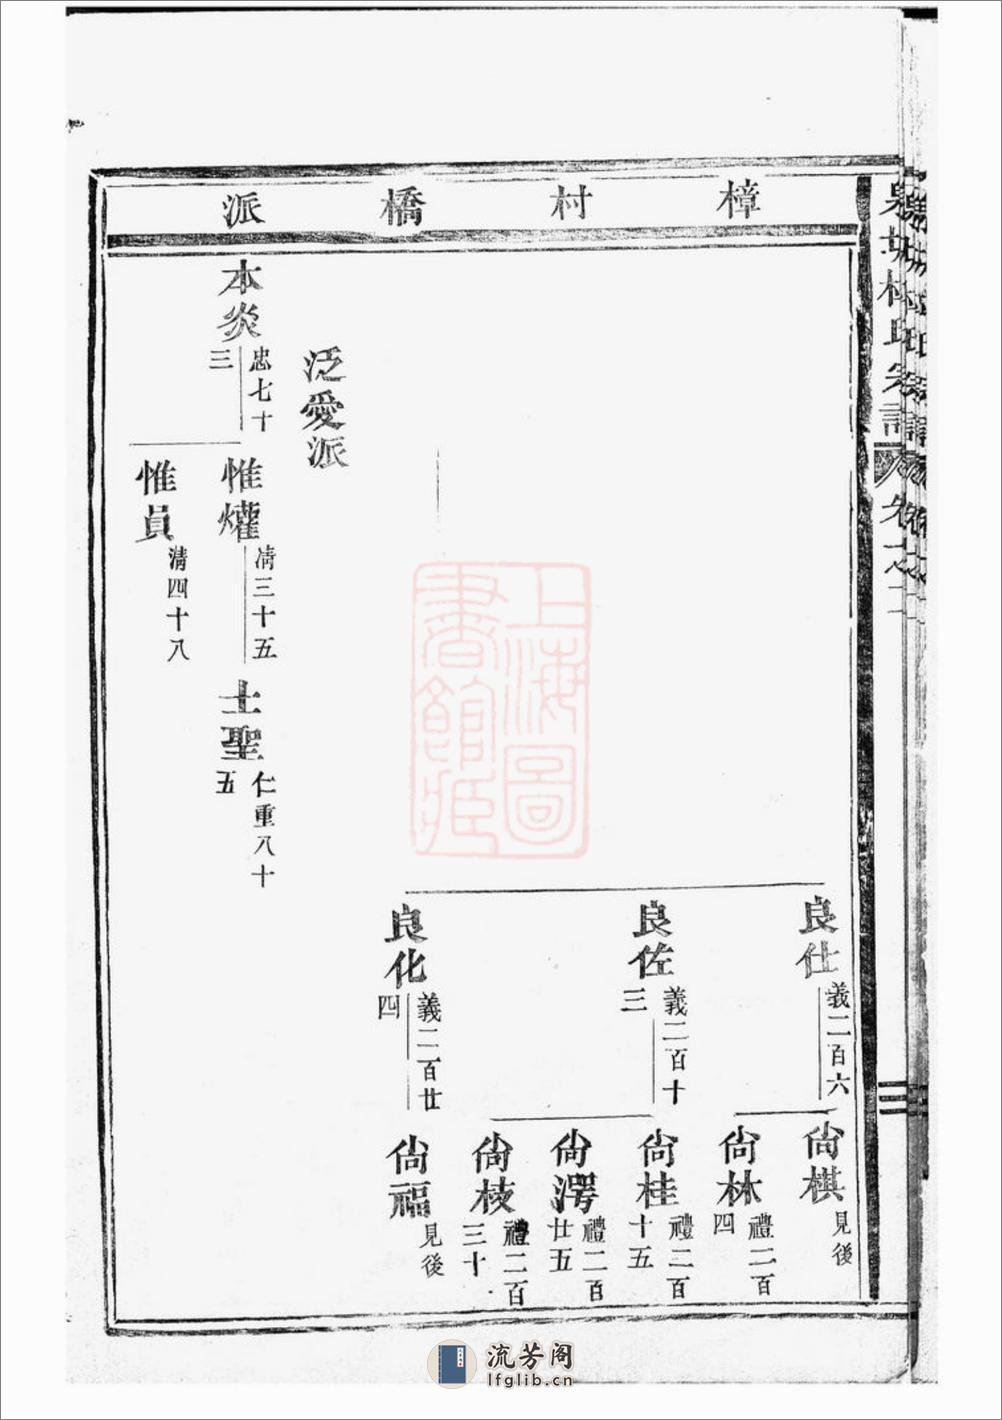 樟村橋派
林氏宗譜
卷之二
三
良仕
義二百六
尙棋
見後
尙林
禮二百
四
良佐
義二百十
三
尙桂
禮二百
十五
尙澪
禮二百
廿五
尙枝
禮二百
三十
良化
義二百廿
四
尙福
見後
泛愛派
本炎
忠七十
三
惟爟
清三十五
士聖
仁重八十
五
惟員
清四十八
上海圖
書館藏
流芳阁
lfglib.cn